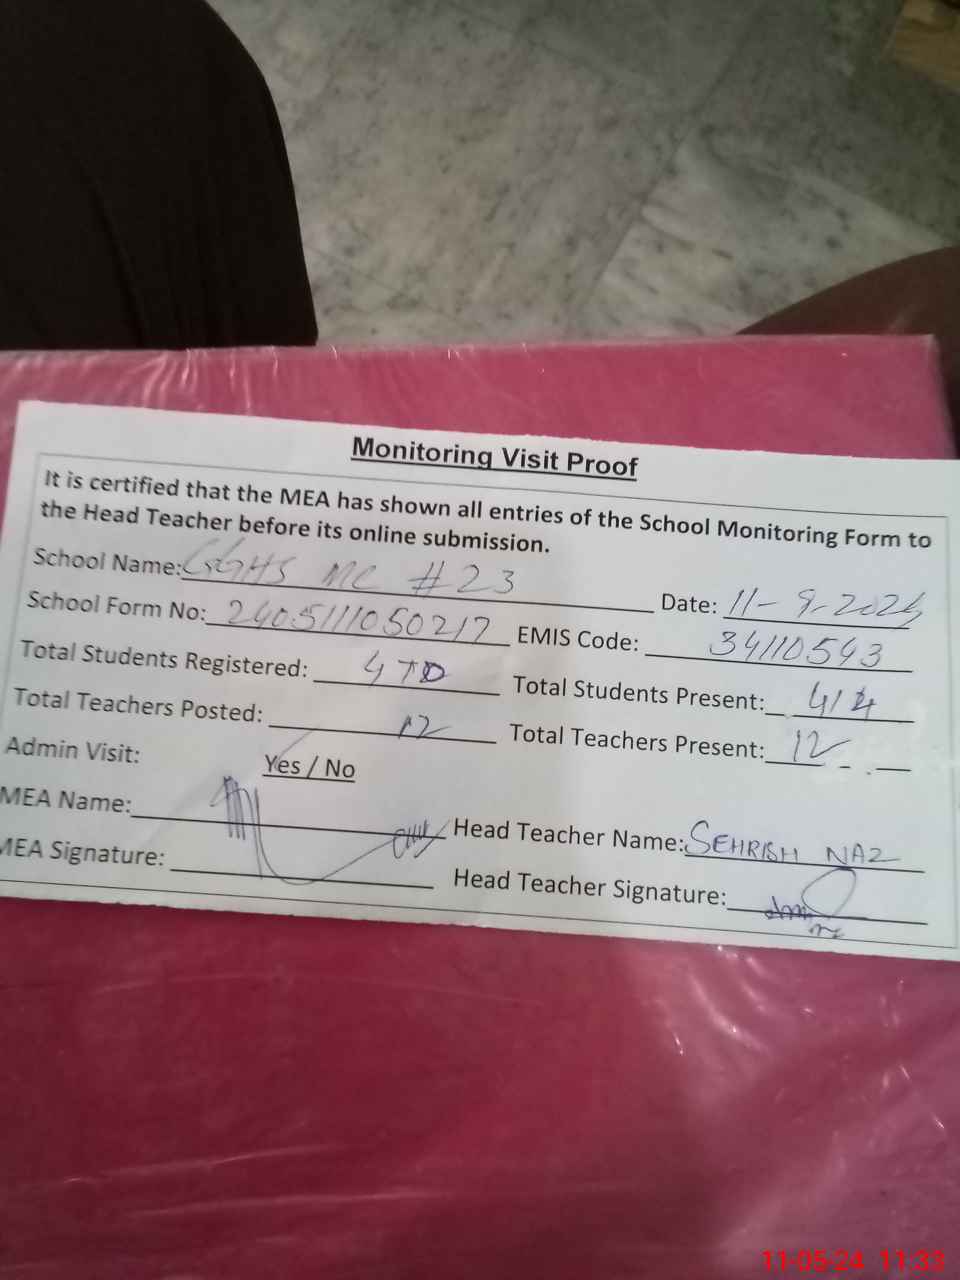 Monitoring Visit Proof
It is certified that the MEA has shown all entries of the School Monitoring Form to
the Head Teacher before its online submission.
School Name: GGHS MC #23 Date: 11-9-2024
School Form No: 2405111050217 EMIS Code: 34110543
Total Students Registered: 470 Total Students Present: 414
Total Teachers Posted: 12 Total Teachers Present: 12
Admin Visit: Yes / No
MEA Name: Head Teacher Name: SEHRISH NAZ
MEA Signature: Head Teacher Signature:
11-05-24 11:33